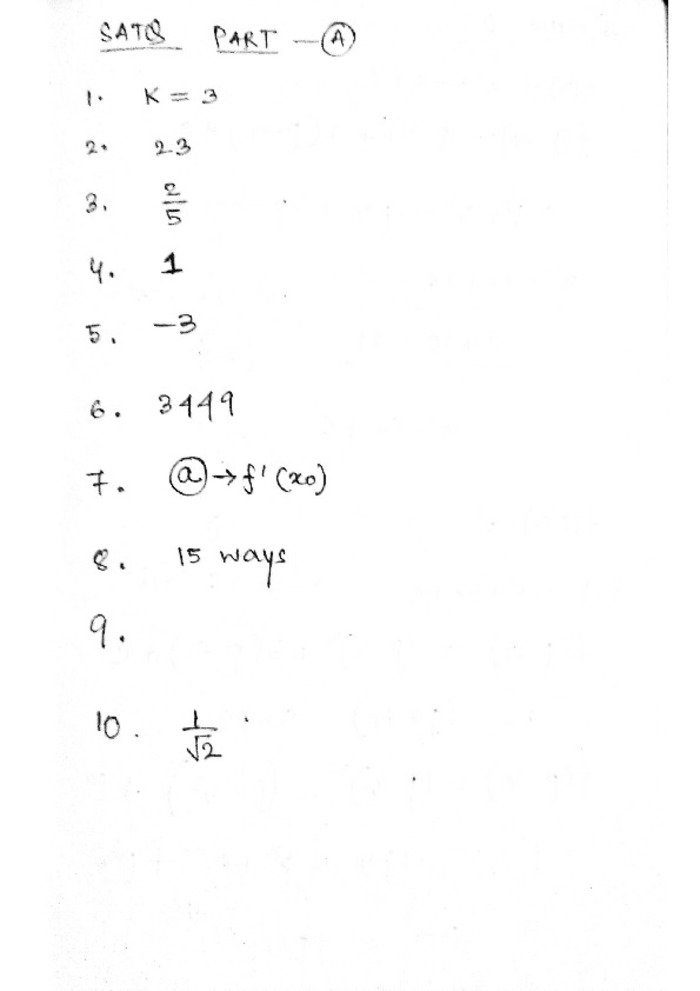 SATQ PART - A
1. K = 3
2. 23
3. 2/5
4. 1
5. -3
6. 3449
7. (a) → f'(x0)
8. 15 ways
9.
10. 1/√2